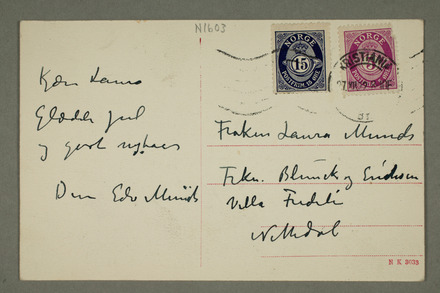 N1603
NORGE
15
POSTFRIM. 15 ØRE
NORGE
KRISTIANIA
Kære Laura
Glædelig jul
og godt nytaar
Din Edv Munch
Frøken Laura Munch
Frkn. Blunck og
Villa
Nittedal
N K 3033